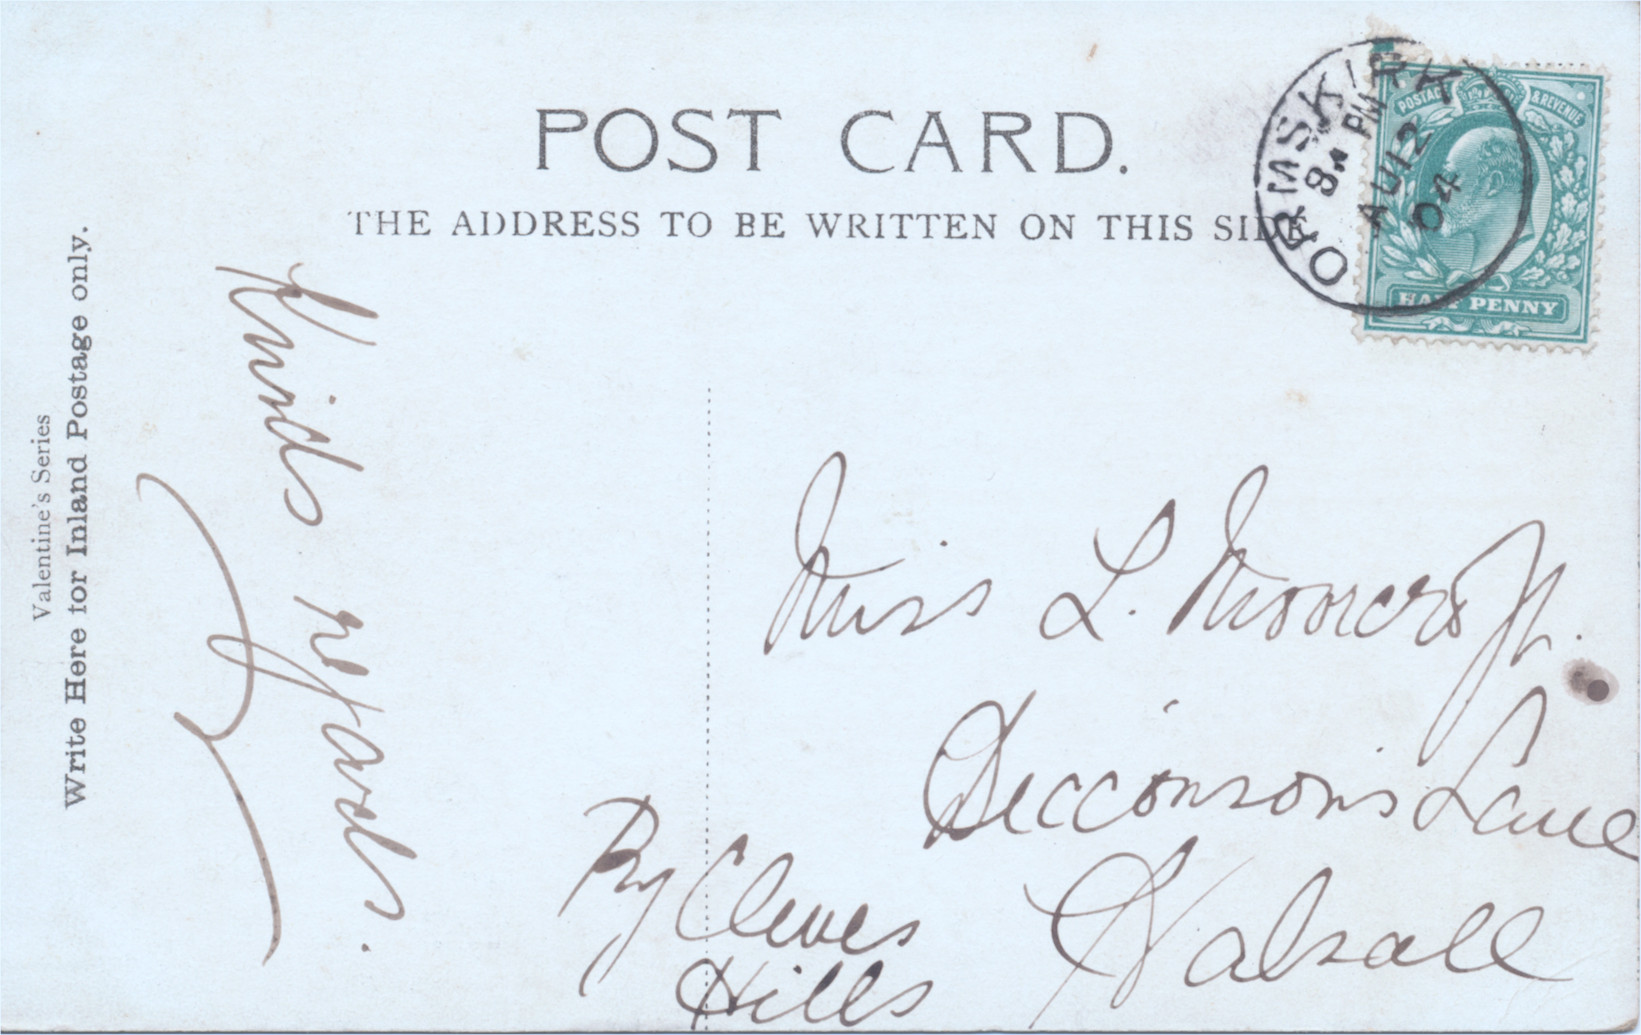 POST CARD.
THE ADDRESS TO BE WRITTEN ON THIS SIDE.
Valentine's Series
Write Here for Inland Postage only.
ORMSKIRK
8 PM
AU 12
04
POSTAGE & REVENUE
HALF PENNY
Kinds regards.
Miss L. Moorcroft.
Decconson's Lane
Halsall
By Cleves
Hills